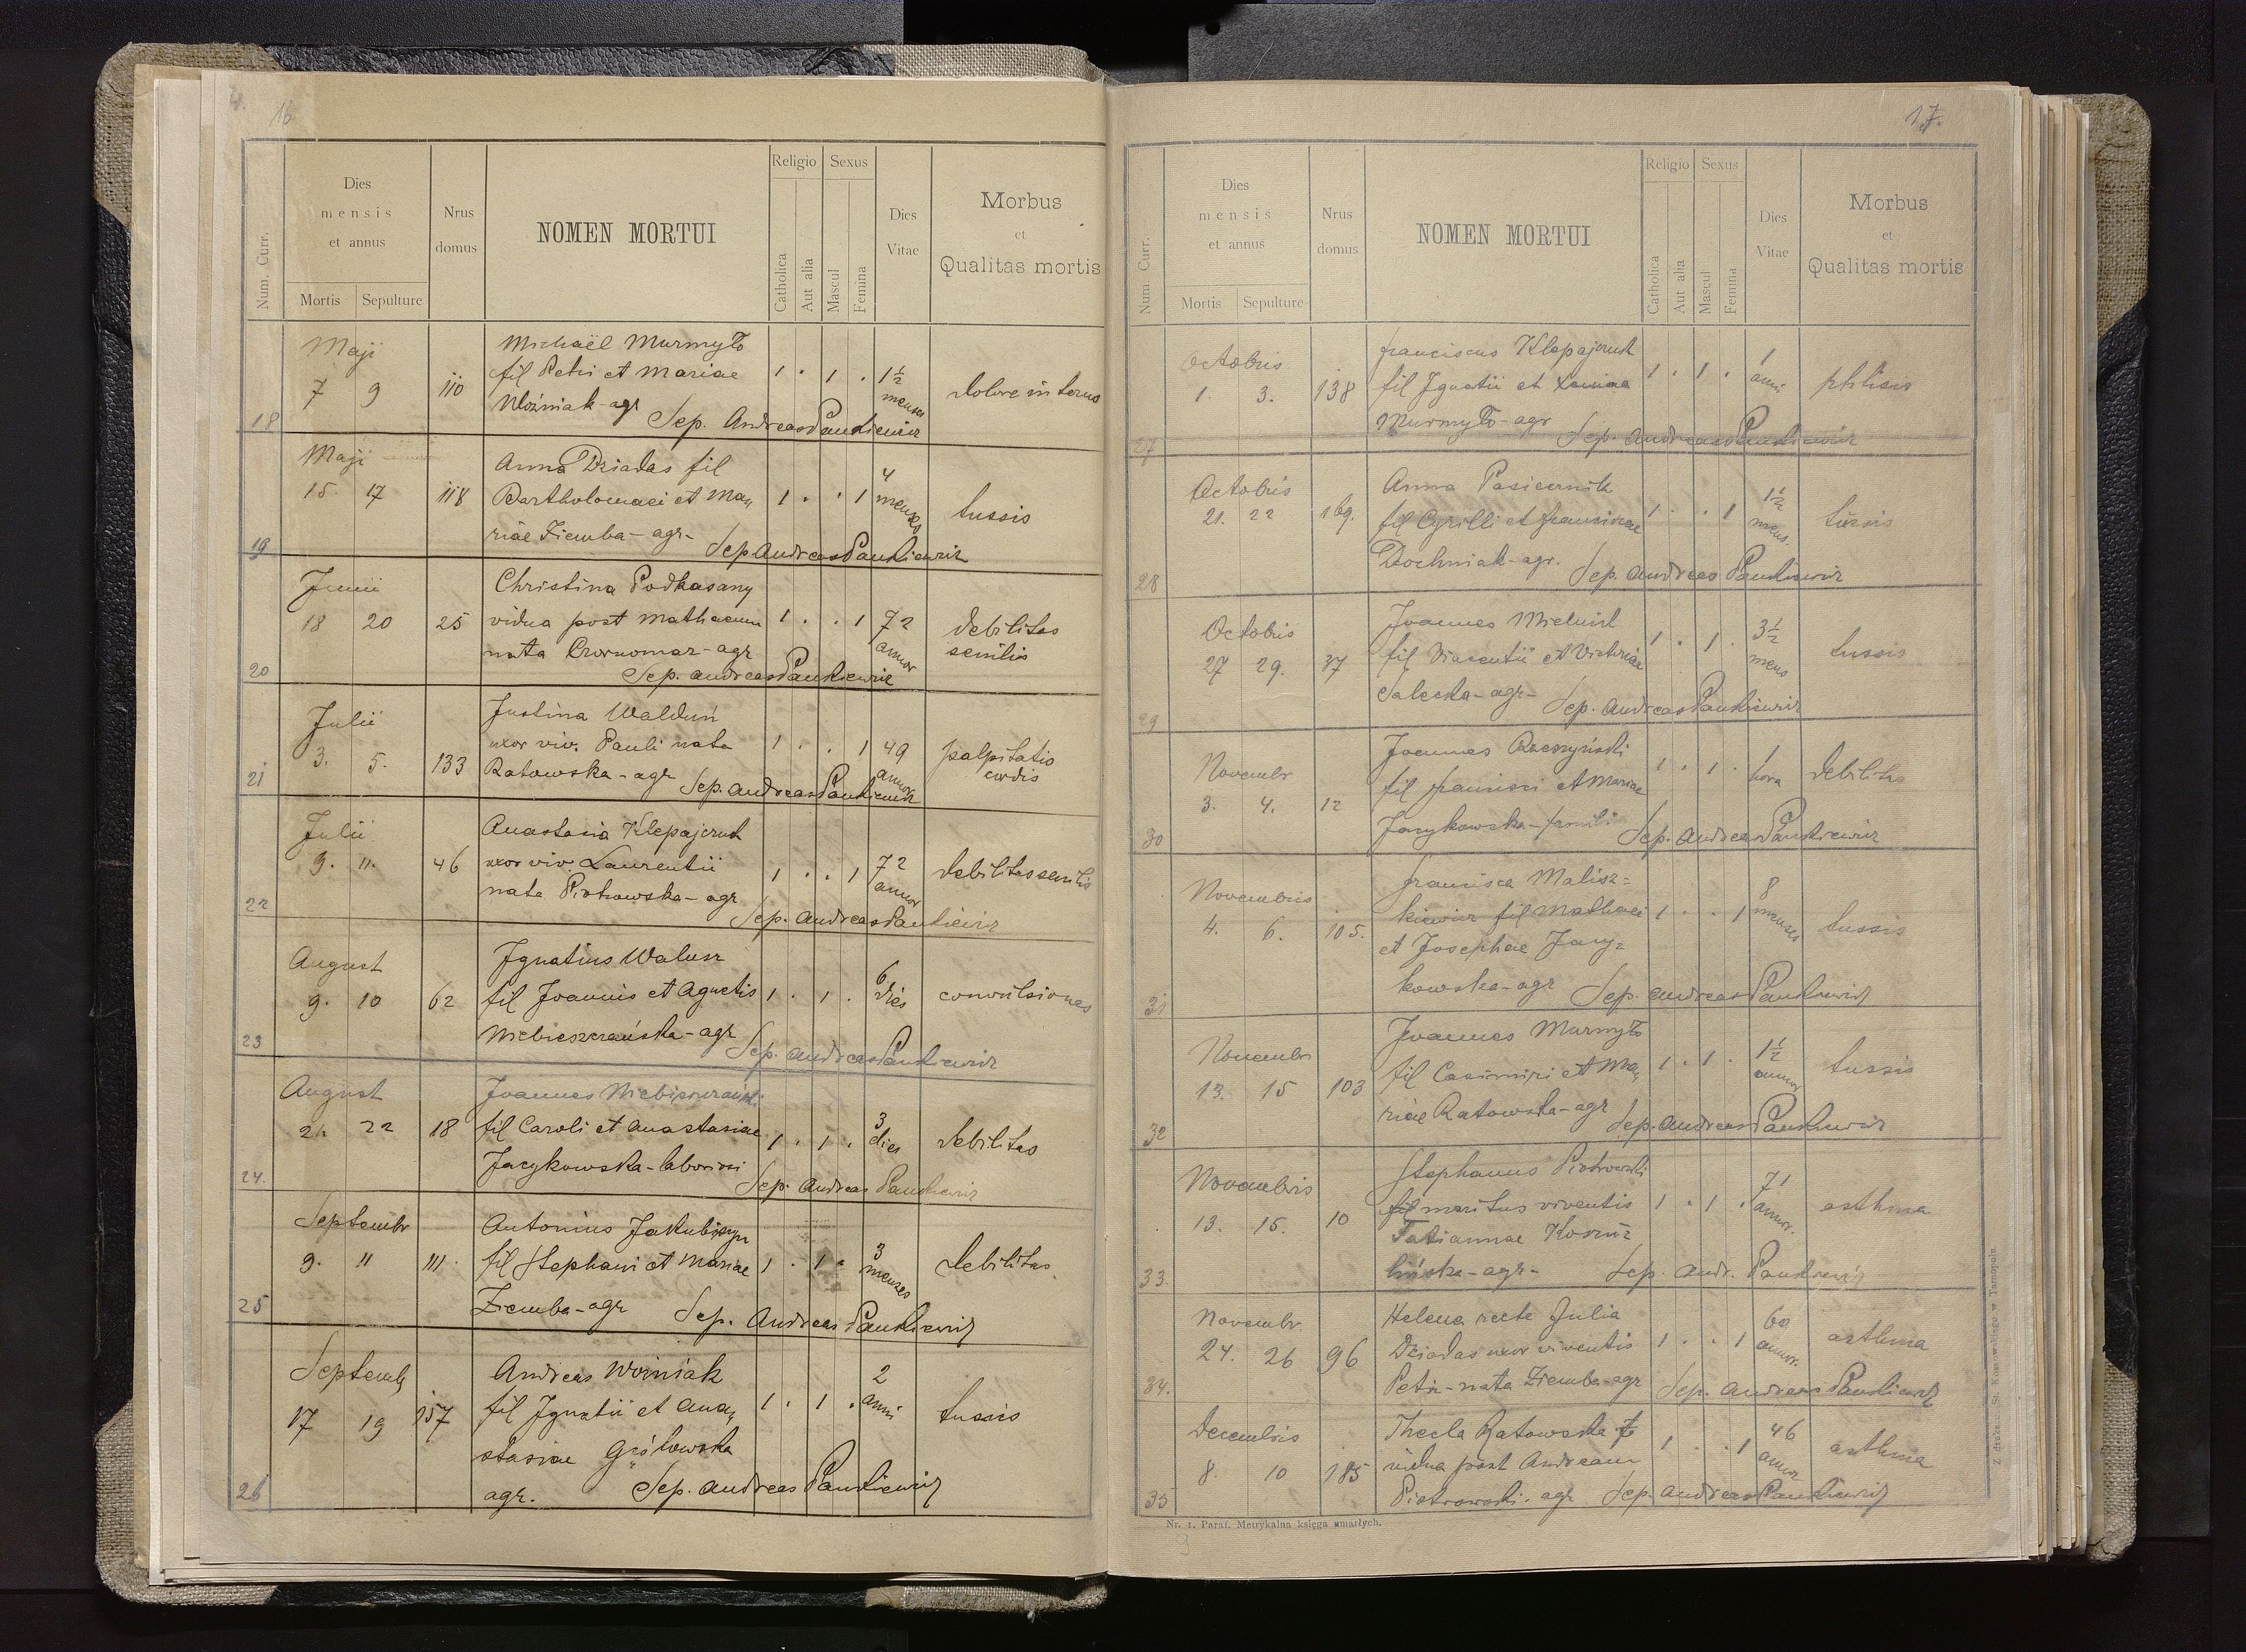 16
Num. Curr.
Dies
mensis
et annus
Mortis Sepulture
Nrus
domus
NOMEN MORTUI
Religio
Catholica
Aut alia
Sexus
Mascul
Femina
Dies
Vitae
Morbus
et
Qualitas mortis
18
Maji
7 9 110
Michaël Murmyło
fil Petri et Mariae
Woźniak - agr
1 . 1 . 1½ menses
dolore internus
Sep. Andreas Pankiewicz
19
Maji
15 17 118
Anna Dziadas fil
Bartholomaei et Ma„
riae Ziemba - agr -
1 . . 1 4 menses
tussis
Sep Andreas Pankiewicz
20
Junii
18 20 25
Christina Podkasany
vidua post Mathaeum
nata Czornomaz - agr
1 . . 1 72 annor
debilitas
senilis
Sep. Andreas Pankiewicz
21
Julii
3. 5. 133
Justina Walduń
uxor viv. Pauli nata
Ratowska - agr
1 . . 1 49 annor
palpitatio
cordis
Sep. Andreas Pankiewicz
22
Julii
9. 11. 46
Anastasia Klepajczuk
uxor viv. Laurentii
nata Piotrowska - agr
1 . . 1 72 annor
debilitas senilis
Sep. Andreas Pankiewicz
23
August
9. 10 62
Ignatius Walusz
fil Joannis et Agnetis
Niebieszczańska - agr
1 . 1 . 6 dies
convulsiones
Sep. Andreas Pankiewicz
24.
August
21 22 18
Joannes Niebieszczański
fil Caroli et Anastasiae
Jarykowska - laboriosi
1 . 1 . 3 dies
debilitas
Sep. Andreas Pankiewicz
25
Septembr
9. 11 111.
Antonius
fil Stephani et Mariae
Ziemba - agr
1 . 1 . 3 menses
debilitas
Sep. Andreas Pankiewicz
26
Septemb
17 19 157
Andreas Woźniak
fil Ignatii et Ana„
stasiae
agr.
1 . 1 . 2 anni
tussis
Sep. Andreas Pankiewicz
17.
Num. Curr.
Dies
mensis
et annus
Mortis Sepulture
Nrus
domus
NOMEN MORTUI
Religio
Catholica
Aut alia
Sexus
Mascul
Femina
Dies
Vitae
Morbus
et
Qualitas mortis
27
Octobris
1. 3. 138
Franciscus Klepajczuk
fil Ignatii et
Murmyło - agr
1 . 1 . 1 anni
phtisis
Sep. Andreas Pankiewicz
28
Octobris
21. 22 169.
Anna Pasicznik
fil Cyrilli et Franciscae
Dochniak - agr.
1 . . 1 1½ mens.
tussis
Sep. Andreas Pankiewicz
29
Octobris
27 29. 37
Joannes Mielnik
fil Vincentii et Victoriae
Salecka - agr -
1 . 1 . 3½ mens
tussis
Sep. Andreas Pankiewicz
30
Novembr
3. 4. 12
Joannes Raczyński
fil Francisci et Mariae
Jarykowska -
1 . 1 . 1 hora
debilitas
Sep. Andreas Pankiewicz
31
Novembris
4. 6. 105.
Francisca Malisz=
kiewicz fil Mathaei
et Josephae Jary=
kowska - agr
1 . . 1 8 menses
tussis
Sep. Andreas Pankiewicz
32
Novembr
13. 15 103
Joannes Murmyło
fil Casimiri et Ma„
riae Ratowska - agr
1 . 1 . 1½ annor
tussis
Sep. Andreas Pankiewicz
33.
Novembris
13. 15. 10
Stephanus Piotrowski
fil maritus viventis
Tatiannae
1 . 1 . 71 annor.
asthma
Sep. Andr. Pankiewicz
34.
Novembr.
24. 26 96
Helena recte Julia
Dziadas uxor viventis
Petri - nata Ziemba - agr
1 . . 1 60 annor.
asthma
Sep. Andreas Pankiewicz
35
Decembris
8. 10 185
Thecla Ratowska
vidua post Andream
Piotrowski. agr
1 . . 1 46 annor
asthma
Sep. Andreas Pankiewicz
Nr. 1. Paraf. Metrykalna księga zmarłych.